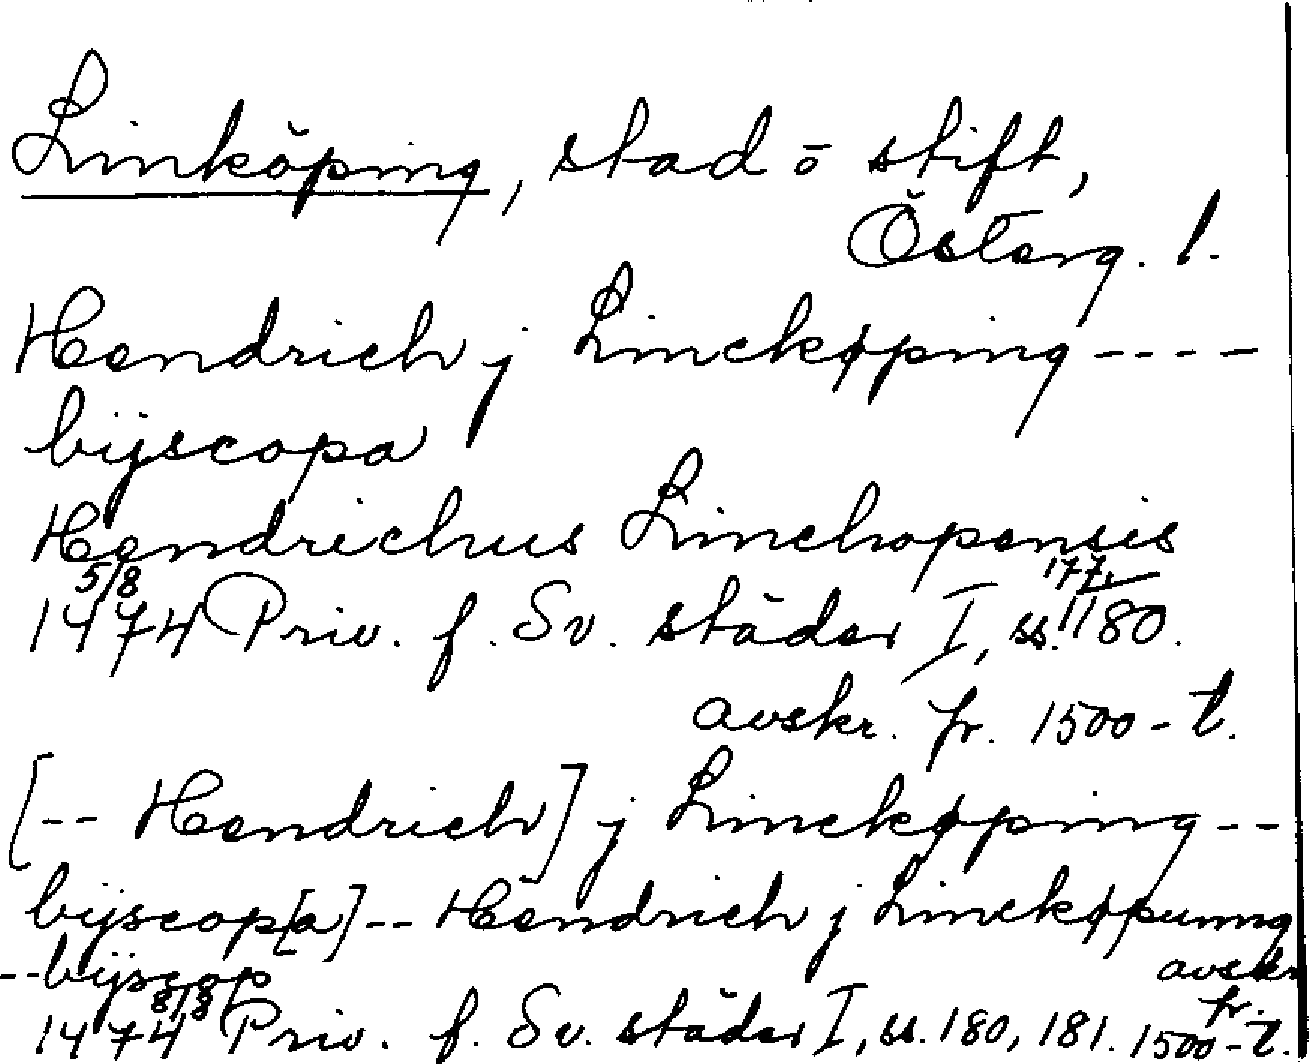 Linköping, stad o stift,
Österg. l.
Hendrich j Linckøping ----
bijscopa
Hendrichus Linchopensis
1474 5/8 Priv. f. Sv. städer I, ss. 177, 180.
avskr. fr. 1500-t.
[-- Hendrich] j Linckøping --
bijscop[a] -- Hendrich j Linckøpunng
--bijscop avskr
1474 8/8 Priv. f. Sv. städer I, ss. 180, 181. fr. 1500-t.